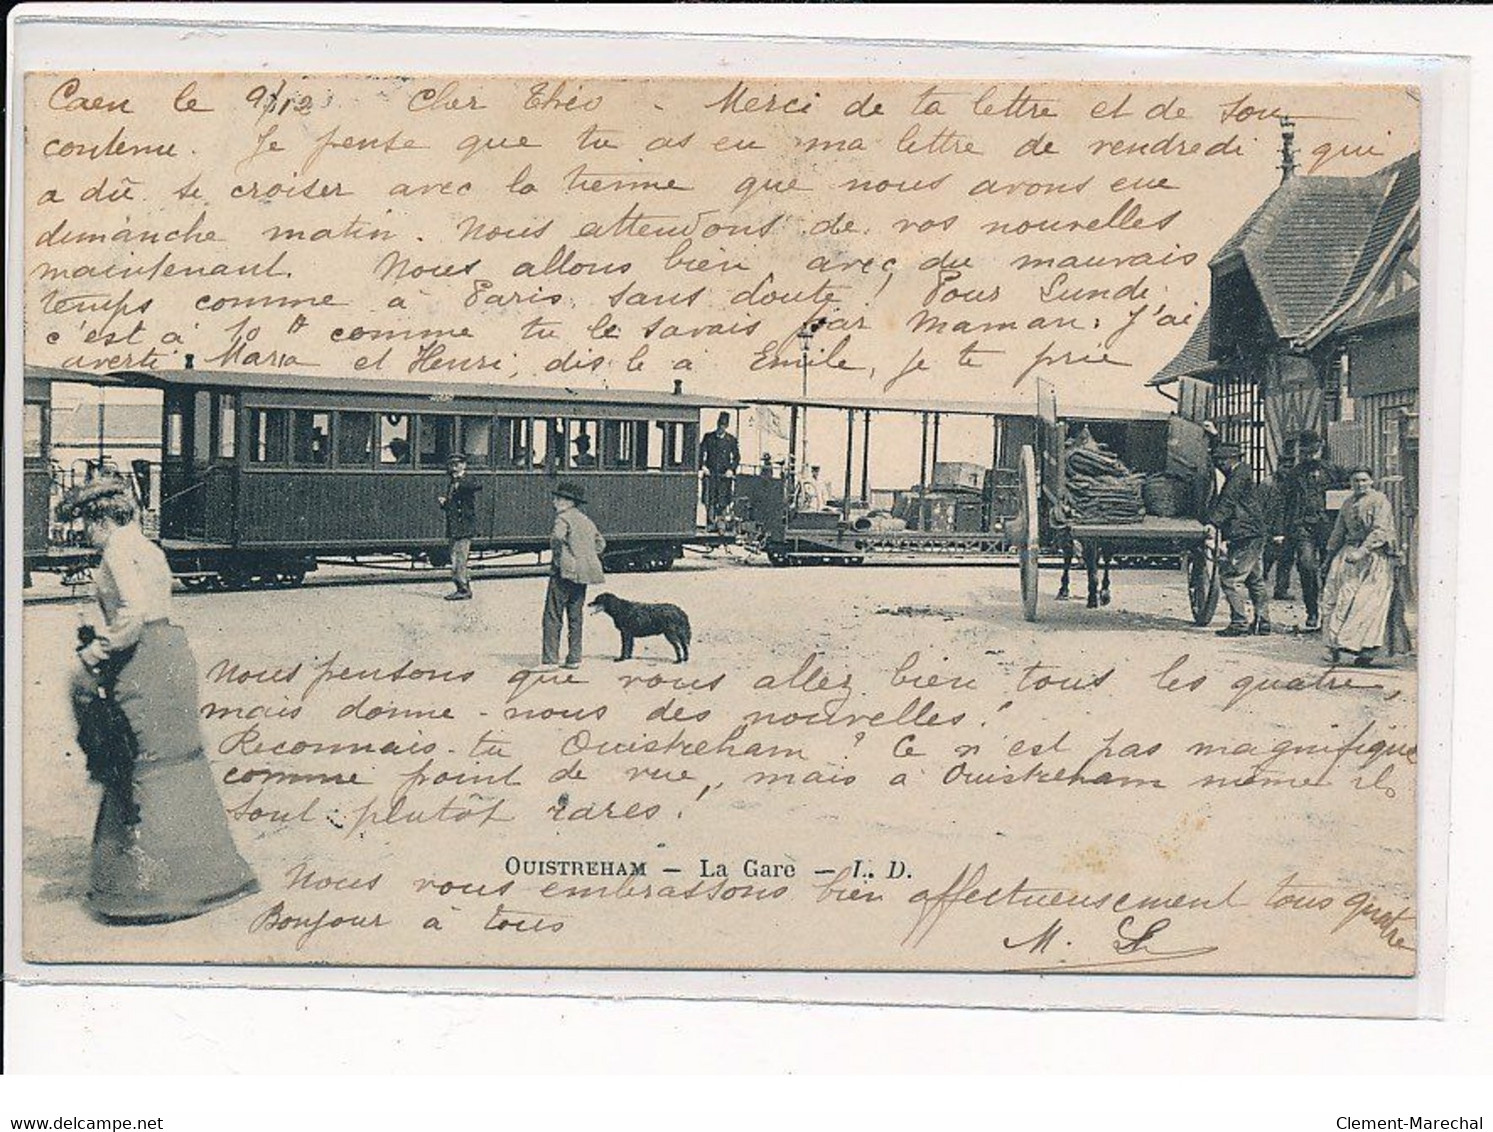 Caen le 9/12 Cher Théo - Merci de ta lettre et de son
contenu. Je pense que tu as eu ma lettre de vendredi qui
a dû se croiser avec la tienne que nous avons eue
dimanche matin. Nous attendons de vos nouvelles
maintenant. Nous allons bien, avec du mauvais
temps comme à Paris, sans doute! Pour Lundi
c'est à 10 h comme tu le savais par Maman, J'ai
averti Maria et Henri, dis-le à Emile, je te prie
Nous pensons que vous allez bien tous les quatre,
mais donne-nous des nouvelles!
Reconnais-tu Ouistreham? Ce n'est pas magnifique
comme point de vue, mais à Ouistreham même ils
sont plutôt rares!
OUISTREHAM — La Gare — L. D.
Nous vous embrassons bien affectueusement tous quatre
Bonjour à tous
M. L
www.delcampe.net
Clement-Marechal